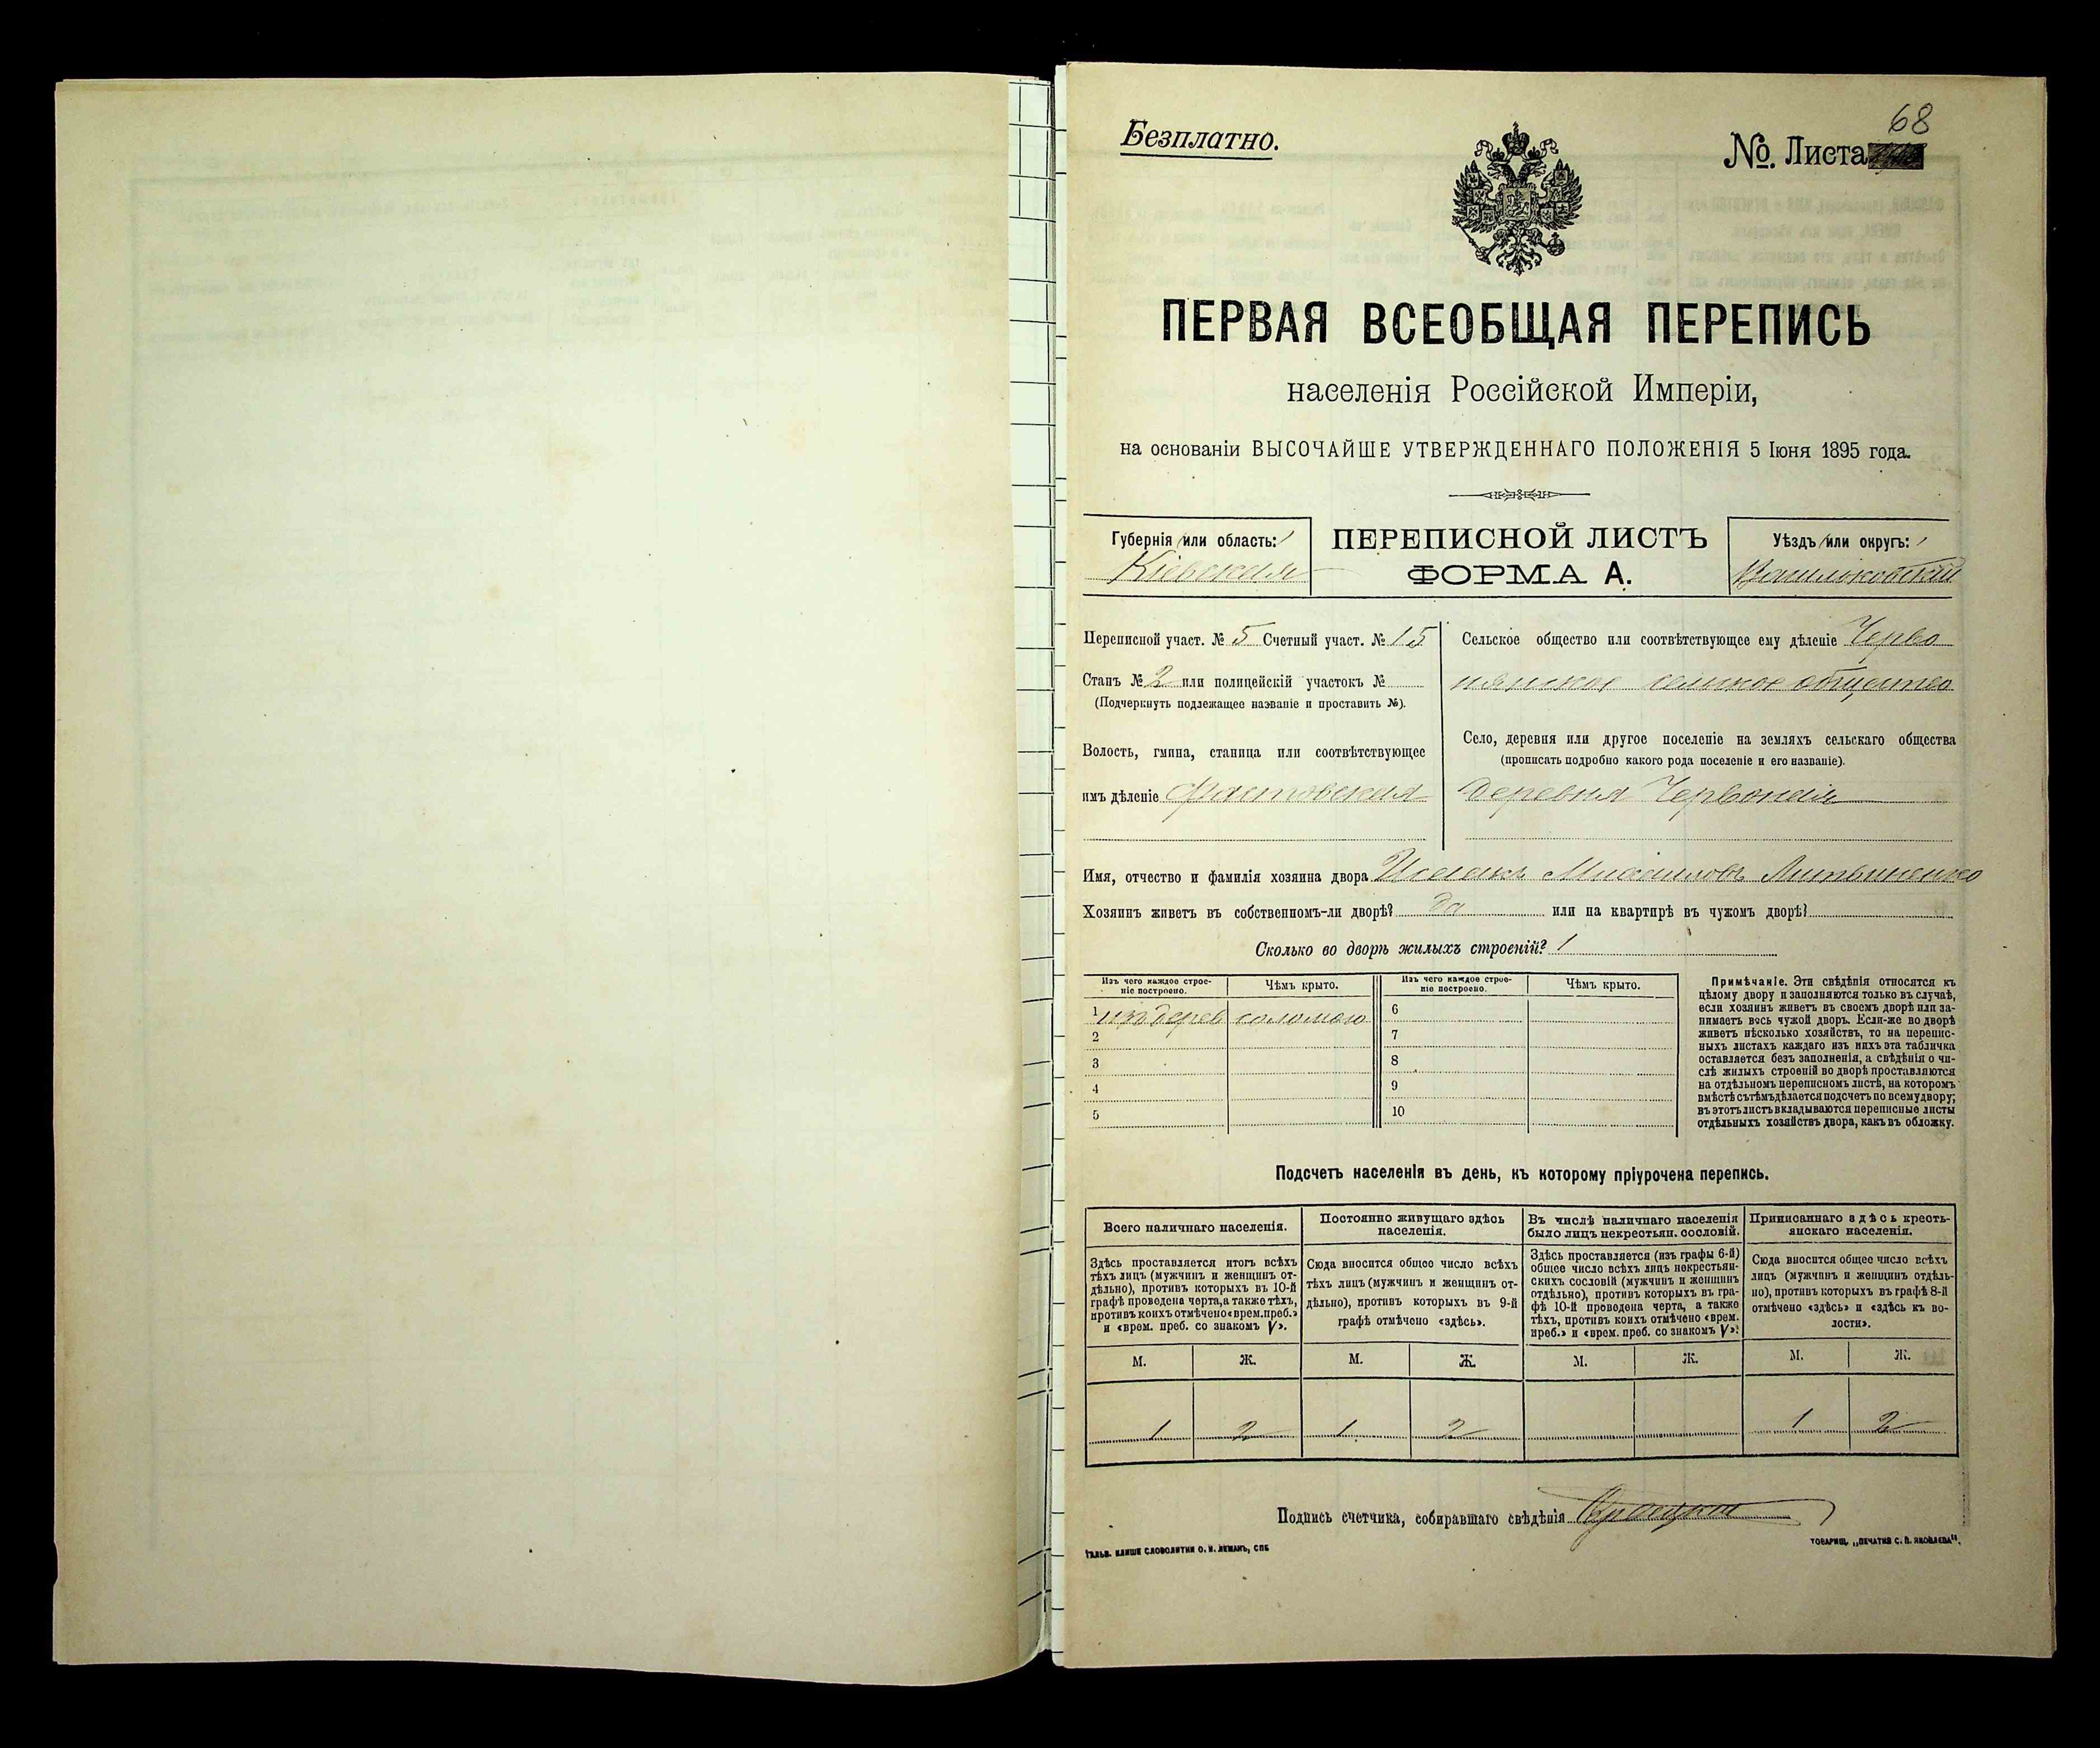 Безплатно.
68
№ Листа
ПЕРВАЯ ВСЕОБЩАЯ ПЕРЕПИСЬ
населенія Россійской Имперіи,
на основаніи ВЫСОЧАЙШЕ УТВЕРЖДЕННАГО ПОЛОЖЕНІЯ 5 Іюня 1895 года.
Губернія или область:
Кіевская
ПЕРЕПИСНОЙ ЛИСТЪ
ФОРМА А.
Уѣздъ или округъ:
Васильковскій
Переписной участ. № 5 Счетный участ. № 15
Станъ № 2 или полицейскій участокъ №
(Подчеркнуть подлежащее названіе и проставить №).
Волость, гмина, станица или соотвѣтствующее
имъ дѣленіе Фастовская
Сельское общество или соотвѣтствующее ему дѣленіе Черво
нянское сельское общество
Село, деревня или другое поселеніе на земляхъ сельскаго общества
(прописать подробно какого рода поселеніе и его названіе).
деревня Червоная
Имя, отчество и фамилія хозяина двора Исаакъ Михаиловъ Литвиненко
Хозяинъ живетъ въ собственномъ-ли дворѣ? да или на квартирѣ въ чужомъ дворѣ?
Сколько во дворѣ жилыхъ строеній? 1
Изъ чего каждое строе-
ніе построено.
Чѣмъ крыто.
Изъ чего каждое строе-
ніе построено.
Чѣмъ крыто.
1 изъ дерев соломою
2
3
4
5
6
7
8
9
10
Примѣчаніе. Эти свѣдѣнія относятся къ
цѣлому двору и заполняются только въ случаѣ,
если хозяинъ живетъ въ своемъ дворѣ или за-
нимаетъ весь чужой дворъ. Если-же во дворѣ
живетъ нѣсколько хозяйствъ, то на перепис-
ныхъ листахъ каждаго изъ нихъ эта табличка
оставляется безъ заполненія, а свѣдѣнія о чи-
слѣ жилыхъ строеній во дворѣ проставляются
на отдѣльномъ переписномъ листѣ, на которомъ
вмѣстѣ съ тѣмъ дѣлается подсчетъ по всему двору;
въ этотъ листъ вкладываются переписные листы
отдѣльныхъ хозяйствъ двора, какъ въ обложку.
Подсчетъ населенія въ день, къ которому пріурочена перепись.
Всего наличнаго населенія.
Здѣсь проставляется итогъ всѣхъ
тѣхъ лицъ (мужчинъ и женщинъ от-
дѣльно), противъ которыхъ въ 10-й
графѣ проведена черта, а также тѣхъ,
противъ коихъ отмѣчено «врем. преб.»
и «врем. преб. со знакомъ V».
Постоянно живущаго здѣсь
населенія.
Сюда вносится общее число всѣхъ
тѣхъ лицъ (мужчинъ и женщинъ от-
дѣльно), противъ которыхъ въ 9-й
графѣ отмѣчено «здѣсь».
Въ числѣ наличнаго населенія
было лицъ некрестьян. сословій.
Здѣсь проставляется (изъ графы 6-й)
общее число всѣхъ лицъ некрестьян-
скихъ сословій (мужчинъ и женщинъ
отдѣльно), противъ которыхъ въ гра-
фѣ 10-й проведена черта, а также
тѣхъ, противъ коихъ отмѣчено «врем.
преб.» и «врем. преб. со знакомъ V».
Приписаннаго здѣсь кресть-
янскаго населенія.
Сюда вносится общее число всѣхъ
лицъ (мужчинъ и женщинъ отдѣль-
но), противъ которыхъ въ графѣ 8-й
отмѣчено «здѣсь» и «здѣсь къ во-
лости».
М. Ж. М. Ж. М. Ж. М. Ж.
1 2 1 2 1 2
Подпись счетчика, собиравшаго свѣдѣнія
ГАЛЬВ. КЛИШЕ СЛОВОЛИТНИ О. И. ЛЕМАНЪ, СПБ
ТОВАРИЩ. „ПЕЧАТНЯ С. П. ЯКОВЛЕВА".